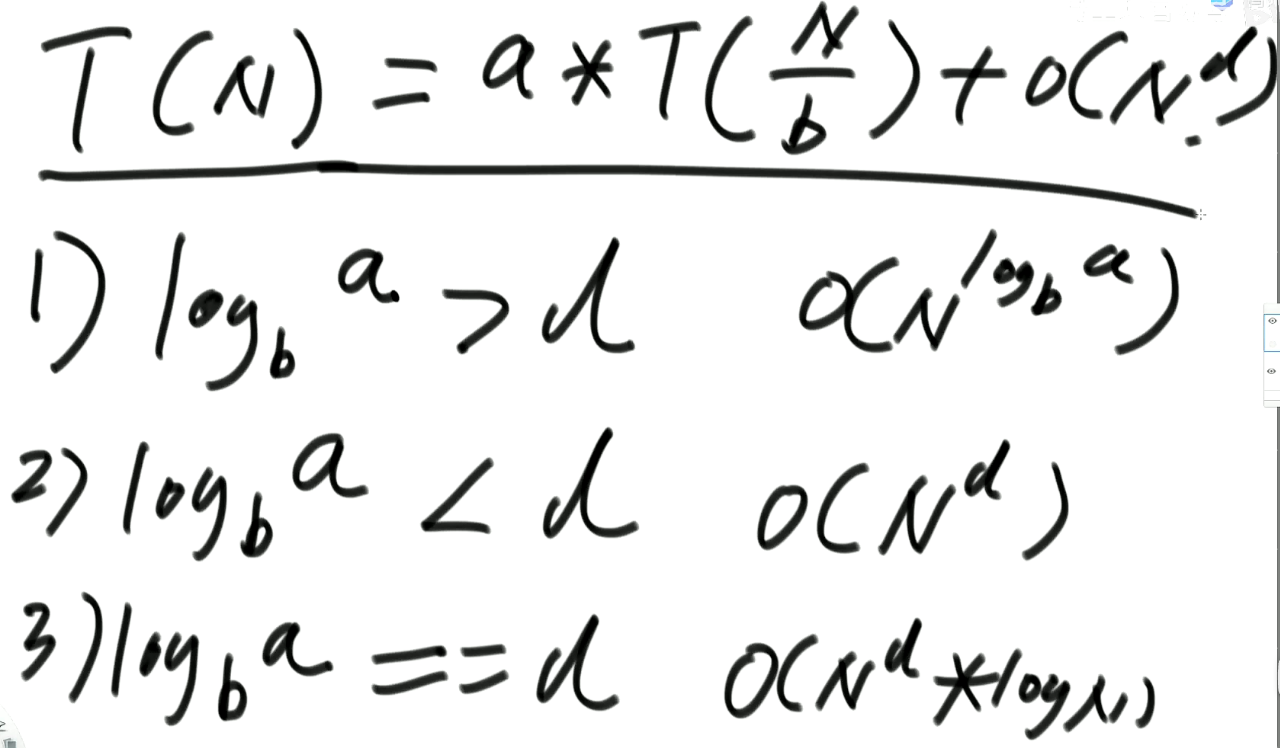 T(N) = a * T(N/b) + O(N^d)
1) log_b^a > d O(N^log_b^a)
2) log_b^a < d O(N^d)
3) log_b^a == d O(N^d * logN)